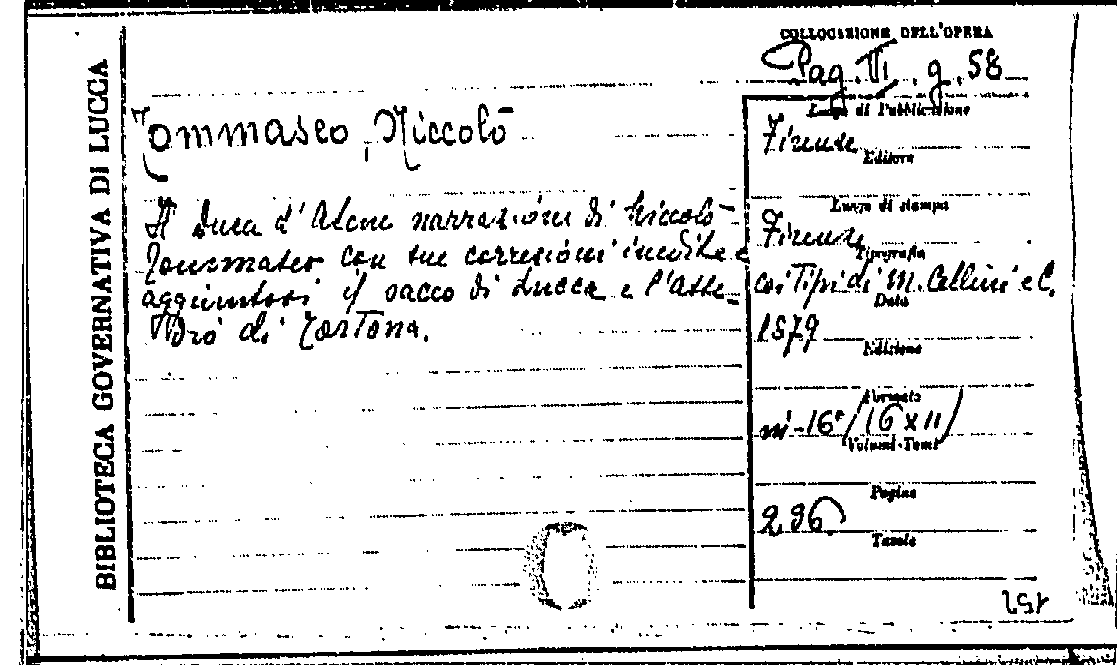 BIBLIOTECA GOVERNATIVA DI LUCCA
COLLOCAZIONE DELL'OPERA
Pag. VI. g. 58
Tommaseo, Niccolò
Il Duca d'Atene narrazione di Niccolò
Tommaseo con sue correzioni inedite e
aggiuntovi il sacco di Lucca e l'asse-
dio di Tortona.
Luogo di Pubblicazione
Firenze
Editore
Luogo di stampa
Firenze
Tipografia
coi Tipi di M. Cellini e C.
Data
1879
Edizione
Formato
in-16° (16 x 11)
Volumi-Tomi
Pagine
296
Tavole